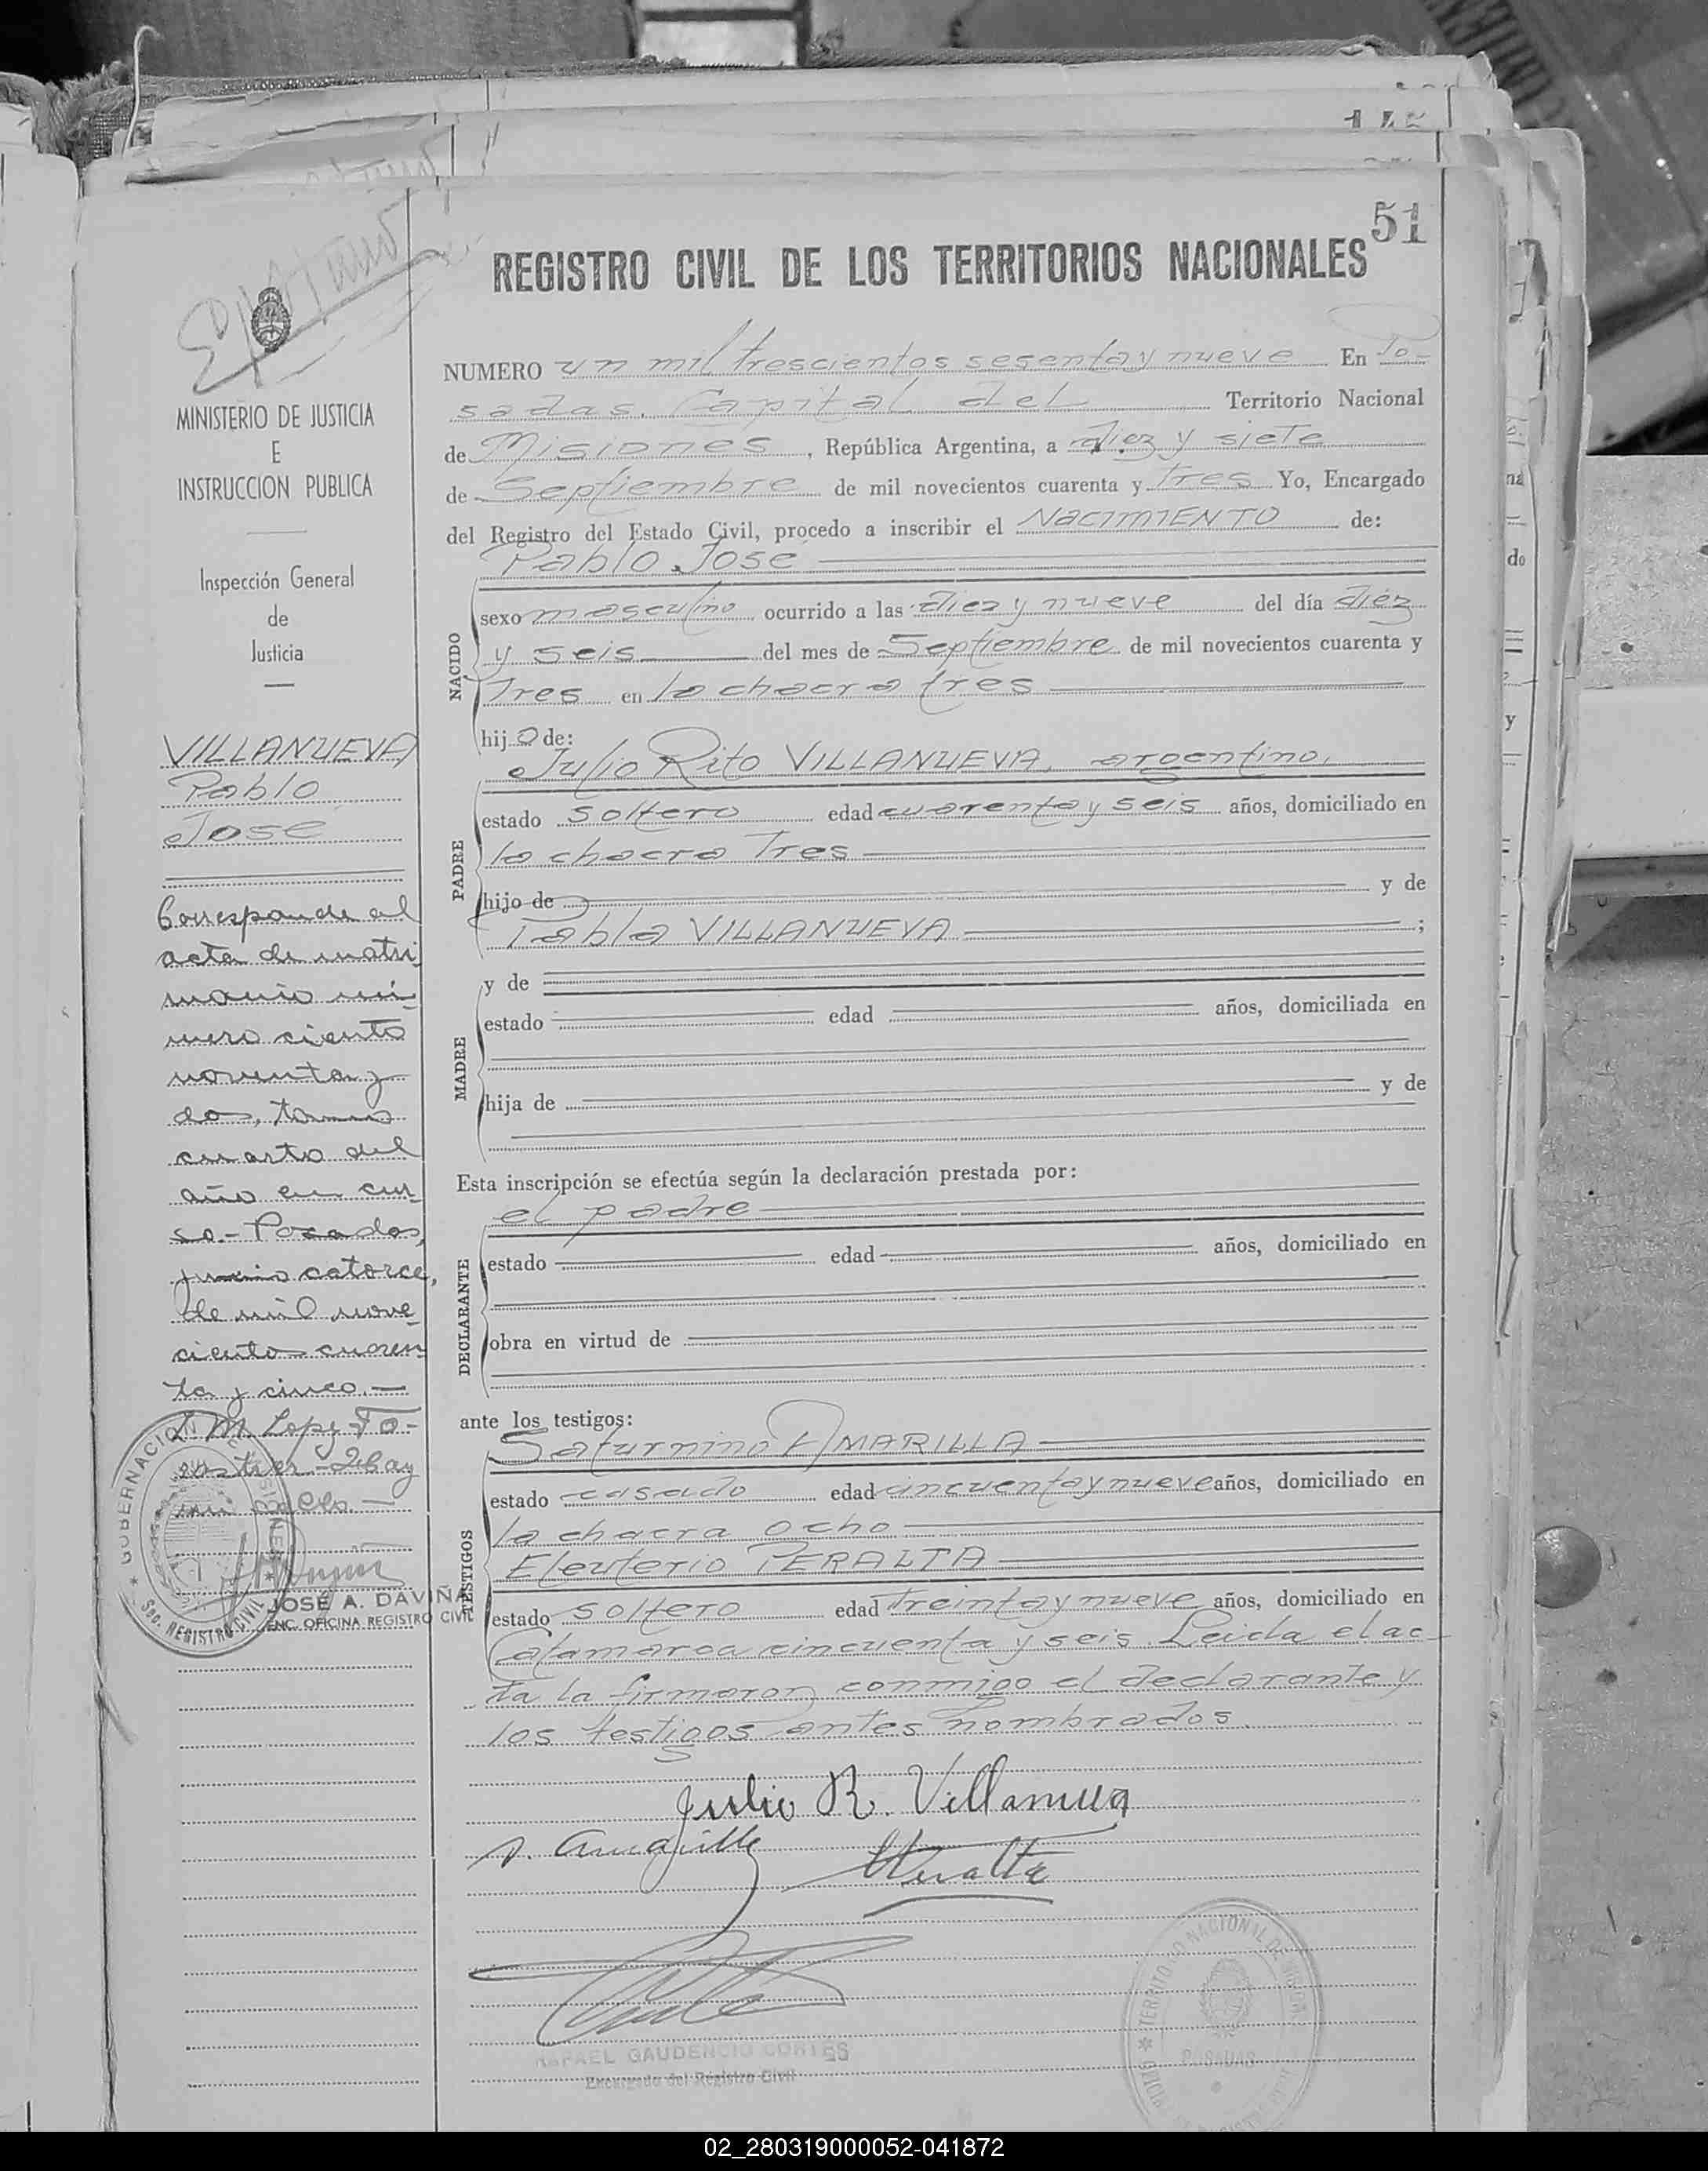 51
REGISTRO CIVIL DE LOS TERRITORIOS NACIONALES
MINISTERIO DE JUSTICIA
E
INSTRUCCION PUBLICA
Inspección General
de
Justicia
VILLANUEVA
Pablo
José
Corresponde al
acta de matri
monio nú-
mero ciento
noventa y
dos, tomo
cuarto del
año en cur
so.- Posadas,
junio catorce,
de mil nove
ciento cuaren
ta y cinco.—
GOBERNACION
Sec. REGISTRO CIVIL
JOSE A. DAVIÑA
ENC. OFICINA REGISTRO CIVIL
NUMERO un mil trescientos sesenta y nueve En Po-
sadas, Capital del Territorio Nacional
de Misiones, República Argentina, a diez y siete
de Septiembre de mil novecientos cuarenta y tres Yo, Encargado
del Registro del Estado Civil, procedo a inscribir el NACIMIENTO de:
Pablo José
NACIDO
sexo masculino ocurrido a las diez y nueve del día diéz
y seis del mes de Septiembre de mil novecientos cuarenta y
Tres en la chacra tres
hijo de:
Julio Rito VILLANUEVA, argentino,
PADRE
estado soltero edad cuarenta y seis años, domiciliado en
la chacra Tres
hijo de y de
Pabla VILLANUEVA ;
MADRE
y de
estado edad años, domiciliada en
hija de y de
Esta inscripción se efectúa según la declaración prestada por:
el padre
DECLARANTE
estado edad años, domiciliado en
obra en virtud de
ante los testigos:
Saturnino AMARILLA
TESTIGOS
estado casado edad cincuenta y nueve años, domiciliado en
la chacra ocho
Eleuterio PERALTA
estado soltero edad Treinta y nueve años, domiciliado en
Catamarca cincuenta y seis. Leida el ac-
ta la firmaron conmigo el declarante y
los testigos antes nombrados.
Julio R. Villanueva
S. Amarilla
Peralta
RAFAEL GAUDENCIO CORTES
Encargado del Registro Civil
TERRITORIO NACIONAL DE MISIONES
POSADAS
02_280319000052-041872